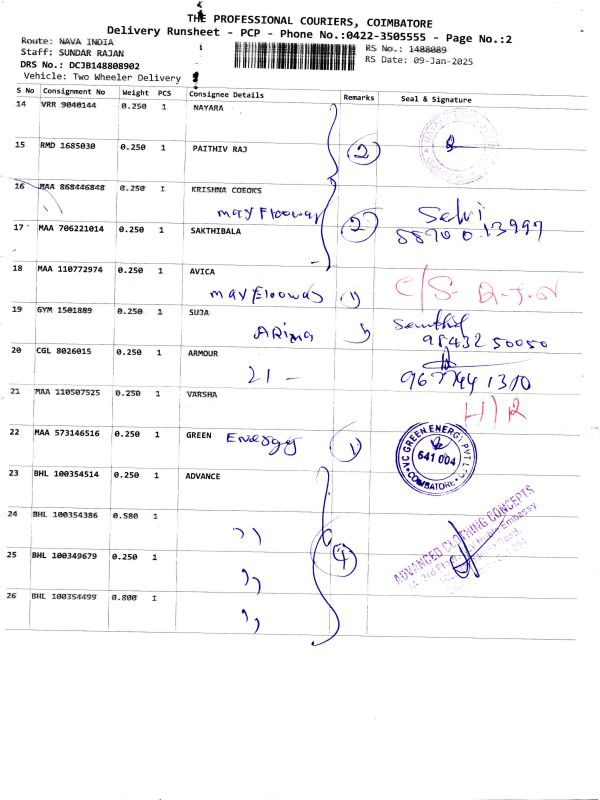 THE PROFESSIONAL COURIERS, COIMBATORE
Delivery Runsheet - PCP - Phone No.:0422-3505555 - Page No.:2
Route: NAVA INDIA
RS No.: 1488089
Staff: SUNDAR RAJAN
RS Date: 09-Jan-2025
DRS No.: DCJB148808902
Vehicle: Two Wheeler Delivery
S No Consignment No Weight PCS Consignee Details Remarks Seal & Signature
14 VRR 9040144 0.250 1 NAYARA
15 RMD 1685030 0.250 1 PAITHIV RAJ 2
16 MAA 868446848 0.250 1 KRISHNA COEOKS
mayFloowar 2 Selvi
17 MAA 706221014 0.250 1 SAKTHIBALA
18 MAA 110772974 0.250 1 AVICA
mayFloowas 1) C/S
19 GYM 1501889 0.250 1 SUJA
98432 50050
20 CGL 8026015 0.250 1 ARMOUR
21 -
21 MAA 110507525 0.250 1 VARSHA
22 MAA 573146516 0.250 1 GREEN Energy 1)
VC GREEN ENERGY PVT LTD
641 004
COIMBATORE
23 BHL 100354514 0.250 1 ADVANCE
24 BHL 100354386 0.580 1 ,,
4
ADVANCED CLOTHING CONCEPTS
25 BHL 100349679 0.250 1 ,,
26 BHL 100354499 0.800 1 ,,